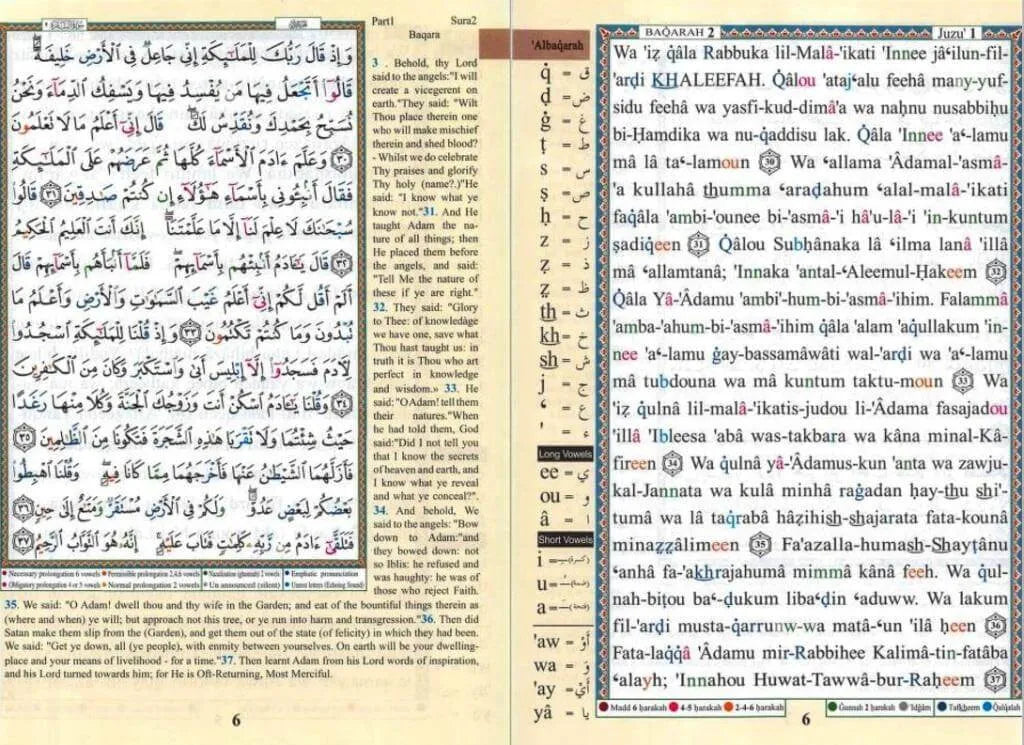 سورة البقرة ٢
وَإِذْ قَالَ رَبُّكَ لِلْمَلَـٰٓئِكَةِ إِنِّي جَاعِلٌ فِي الْأَرْضِ خَلِيفَةً ۖ
قَالُوٓا۟ أَتَجْعَلُ فِيهَا مَن يُفْسِدُ فِيهَا وَيَسْفِكُ الدِّمَآءَ وَنَحْنُ
نُسَبِّحُ بِحَمْدِكَ وَنُقَدِّسُ لَكَ ۖ قَالَ إِنِّيٓ أَعْلَمُ مَا لَا تَعْلَمُونَ
٣٠ وَعَلَّمَ ءَادَمَ الْأَسْمَآءَ كُلَّهَا ثُمَّ عَرَضَهُمْ عَلَى الْمَلَـٰٓئِكَةِ
فَقَالَ أَنۢبِـُٔونِي بِأَسْمَآءِ هَـٰٓؤُلَآءِ إِن كُنتُمْ صَـٰدِقِينَ ٣١ قَالُوا۟
سُبْحَـٰنَكَ لَا عِلْمَ لَنَآ إِلَّا مَا عَلَّمْتَنَآ ۖ إِنَّكَ أَنتَ الْعَلِيمُ الْحَكِيمُ
٣٢ قَالَ يَـٰٓـَٔادَمُ أَنۢبِئْهُم بِأَسْمَآئِهِمْ ۖ فَلَمَّآ أَنۢبَأَهُم بِأَسْمَآئِهِمْ قَالَ
أَلَمْ أَقُل لَّكُمْ إِنِّيٓ أَعْلَمُ غَيْبَ السَّمَـٰوَٰتِ وَالْأَرْضِ وَأَعْلَمُ مَا
تُبْدُونَ وَمَا كُنتُمْ تَكْتُمُونَ ٣٣ وَإِذْ قُلْنَا لِلْمَلَـٰٓئِكَةِ اسْجُدُوا۟
لِـَٔادَمَ فَسَجَدُوٓا۟ إِلَّآ إِبْلِيسَ أَبَىٰ وَاسْتَكْبَرَ وَكَانَ مِنَ الْكَـٰفِرِينَ
٣٤ وَقُلْنَا يَـٰٓـَٔادَمُ اسْكُنْ أَنتَ وَزَوْجُكَ الْجَنَّةَ وَكُلَا مِنْهَا رَغَدًا
حَيْثُ شِئْتُمَا وَلَا تَقْرَبَا هَـٰذِهِ الشَّجَرَةَ فَتَكُونَا مِنَ الظَّـٰلِمِينَ ٣٥
فَأَزَلَّهُمَا الشَّيْطَـٰنُ عَنْهَا فَأَخْرَجَهُمَا مِمَّا كَانَا فِيهِ ۖ وَقُلْنَا اهْبِطُوا۟
بَعْضُكُمْ لِبَعْضٍ عَدُوٌّ ۖ وَلَكُمْ فِي الْأَرْضِ مُسْتَقَرٌّ وَمَتَـٰعٌ إِلَىٰ حِينٍ ٣٦
فَتَلَقَّىٰٓ ءَادَمُ مِن رَّبِّهِۦ كَلِمَـٰتٍ فَتَابَ عَلَيْهِ ۚ إِنَّهُۥ هُوَ التَّوَّابُ الرَّحِيمُ ٣٧
Necessary prolongation 6 vowels Permissible prolongation 2,4,6 vowels Nazalization (ghunnah) 2 vowels Emphatic pronunciation
Obligatory prolongation 4 or 5 vowels Normal prolongation 2 vowels Un announced (silent) Unrest letters (Echoing Sound)
Part1 Sura2
Baqara
3 . Behold, thy Lord
said to the angels:"I will
create a vicegerent on
earth."They said: "Wilt
Thou place therein one
who will make mischief
therein and shed blood?
- Whilst we do celebrate
Thy praises and glorify
Thy holy (name?.)"He
said: "I know what ye
know not."31. And He
taught Adam the na-
ture of all things; then
He placed them before
the angels, and said:
"Tell Me the nature of
these if ye are right."
32. They said: "Glory
to Thee: of knowledàge
we have one, save what
Thou hast taught us: in
truth it is Thou who art
perfect in knowledge
and wisdom.» 33. He
said:"OAdam! tell them
their natures."When
he had told them, God
said:"Did I not tell you
that I know the secrets
of heaven and earth, and
I know what ye reveal
and what ye conceal?".
34. And behold, We
said to the angels: "Bow
down to Adam:"and
they bowed down: not
so Iblis: he refused and
was haughty: he was of
those who reject Faith.
35. We said: "O Adam! dwell thou and thy wife in the Garden; and eat of the bountiful things therein as
(where and when) ye will; but approach not this tree, or ye run into harm and transgression."36. Then did
Satan make them slip from the (Garden), and get them out of the state (of felicity) in which they had been.
We said: "Get ye down, all (ye people), with enmity between yourselves. On earth will be your dwelling-
place and your means of livelihood - for a time."37. Then learnt Adam from his Lord words of inspiration,
and his Lord turned towards him; for He is Oft-Returning, Most Merciful.
6
'Albaqarah
q̇ = ق
ḍ = ض
ġ = غ
ṭ = ط
s = س
ṣ = ص
ḥ = ح
z = ز
ẓ = ذ
ẓ̤ = ظ
th = ث
kh = خ
sh = ش
j = ج
ʻ = ع
' = ء
Long Vowels
ee = ي
ou = و
â = ا
Short Vowels
i = (كسرة)
u = (ضمة)
a = (فتحة)
'aw = أَوْ
wa = وَ
'ay = أَيْ
yâ = يا
BAQARAH 2 Juzu' 1
Wa 'iẓ q̇âla Rabbuka lil-Malâ-'ikati 'Innee jâʻilun-fil-
'arḍi KHALEEFAH. Q̇âlou 'atajʻalu feehâ many-yuf-
sidu feehâ wa yasfi-kud-dimâ'a wa naḥnu nusabbiḥu
bi-Ḥamdika wa nu-q̇addisu lak. Q̇âla 'Innee 'aʻ-lamu
mâ lâ taʻ-lamoun 30 Wa ʻallama 'Âdamal-'asmâ-
'a kullahâ thumma ʻaraḍahum ʻalal-malâ-'ikati
faq̇âla 'ambi-'ounee bi-'asmâ-'i hâ'u-lâ-'i 'in-kuntum
ṣadiq̇een 31 Q̇âlou Subḥânaka lâ ʻilma lanâ 'illâ
mâ ʻallamtanâ; 'Innaka 'antal-ʻAleemul-Ḥakeem 32
Q̇âla Yâ-'Âdamu 'ambi'-hum-bi-'asmâ-'ihim. Falammâ
'amba-'ahum-bi-'asmâ-'ihim q̇âla 'alam 'aq̇ullakum 'in-
nee 'aʻ-lamu ġay-bassamâwâti wal-'arḍi wa 'aʻ-lamu
mâ tubdouna wa mâ kuntum taktu-moun 33 Wa
'iẓ q̇ulnâ lil-malâ-'ikatis-judou li-'Âdama fasajadou
'illâ 'Ibleesa 'abâ was-takbara wa kâna minal-Kâ-
fireen 34 Wa q̇ulnâ yâ-'Âdamus-kun 'anta wa zawju-
kal-Jannata wa kulâ minhâ raġadan ḥay-thu shi'-
tumâ wa lâ taq̇rabâ hâẓihish-shajarata fata-kounâ
minaẓ̤ẓ̤âlimeen 35 Fa'azalla-humash-Shayṭânu
ʻanhâ fa-'akhrajahumâ mimmâ kânâ feeh. Wa q̇ul-
nah-biṭou baʻ-ḍukum libaʻḍin ʻaduww. Wa lakum
fil-'arḍi musta-q̇arrunw-wa matâ-ʻun 'ilâ ḥeen 36
Fata-laq̇q̇â 'Âdamu mir-Rabbihee Kalimâ-tin-fatâba
ʻalayh; 'Innahou Huwat-Tawwâ-bur-Raḥeem 37
Madd 6 ḥarakah 4-5 ḥarakah 2-4-6 ḥarakah Ġunnah 2 ḥarakah 'Idġâm Tafkheem Q̇alq̇alah
6